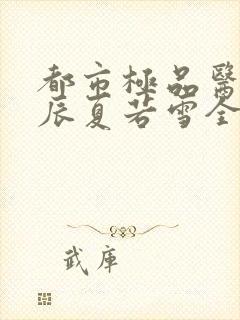 都市極品醫
辰夏若雪全
武庫